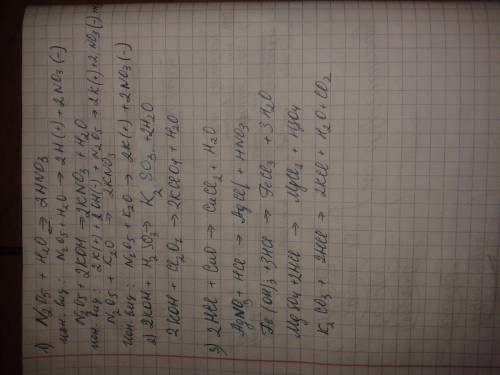 1) N2O5 + H2O ⇒ 2HNO3
ион. вид: N2O5 + H2O → 2H(+) + 2NO3(-)
N2O5 + 2KOH → 2KNO3 + H2O
ион. вид: 2K(+) + 2OH(-) + N2O5 → 2K(+) + 2NO3(-)
N2O5 + K2O → 2KNO3
ион. вид: N2O5 + K2O → 2K(+) + 2NO3(-)
2) 2KOH + H2SO3 → K2SO3 + 2H2O
2KOH + Cl2O7 → 2KClO4 + H2O
3) 2HCl + CuO → CuCl2 + H2O
AgNO3 + HCl → AgCl + HNO3
Fe(OH)3 + 3HCl → FeCl3 + 3H2O
MgSO4 + 2HCl → MgCl2 + H2SO4
K2CO3 + 2HCl → 2KCl + H2O + CO2